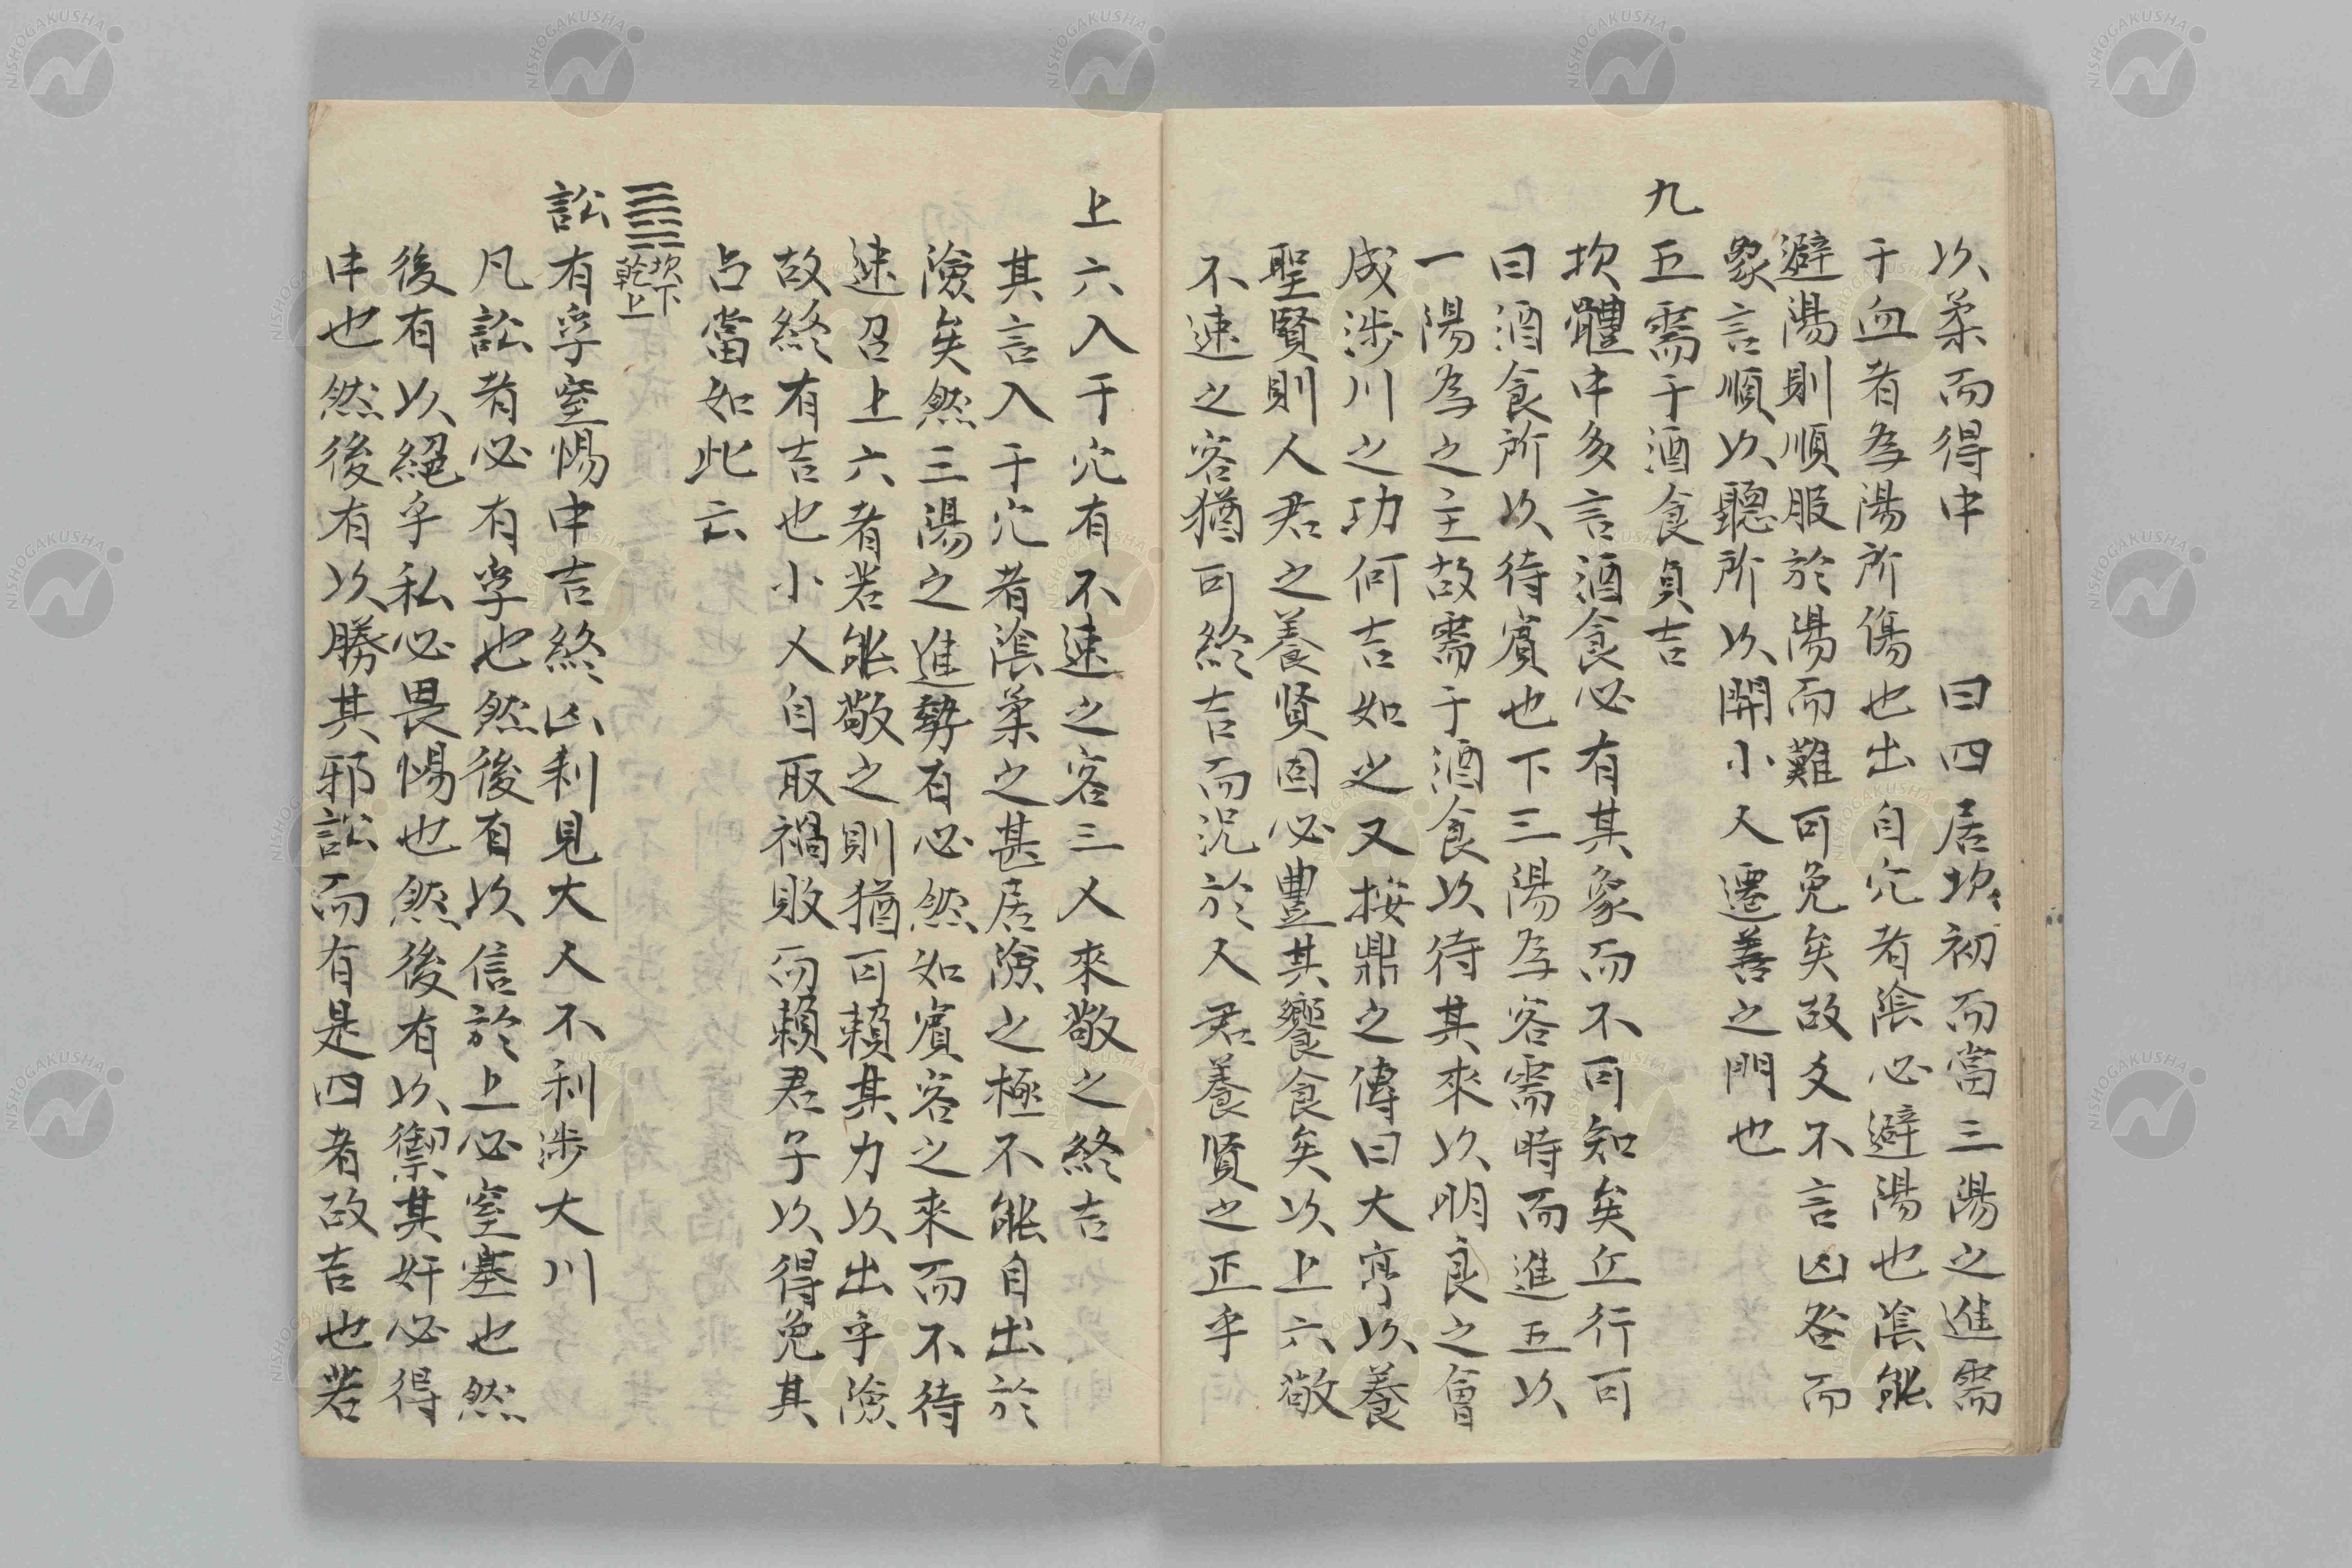 以柔而得中　曰四居坎初而當三陽之進需
于血者為陽所傷也出自穴者陰必避陽也陰能
避陽則順服於陽而難可免矣故爻不言凶咎而
象言順以聽所以開小人遷善之門也
九五需于酒食貞吉
坎體中多言酒食必有其象而不可知矣丘行可
曰酒食所以待賓也下三陽為客需時而進五以
一陽為之主故需于酒食以待其來以明良之會
成涉川之功何吉如之又按鼎之傳曰大亨以養
聖賢則人君之養賢固必豊其饗食矣以上六敬
不速之客猶可終吉而況於人君養賢之正乎
上六入于穴有不速之客三人來敬之終吉
其言入于穴者陰柔之甚居險之極不能自出於
險矣然三陽之進勢有必然如賓客之來而不待
速召上六者若能敬之則猶可賴其力以出乎險
故終有吉也小人自取禍敗而賴君子以得免其
占當如此云
䷅坎下乾上
訟有孚窒惕中吉終凶利見大人不利涉大川
凡訟者必有孚也然後有以信於上必窒塞也然
後有以絕乎私必畏惕也然後有以禦其奸必得
中也然後有以勝其邪訟而有是四者故吉也若
NISHOGAKUSHA